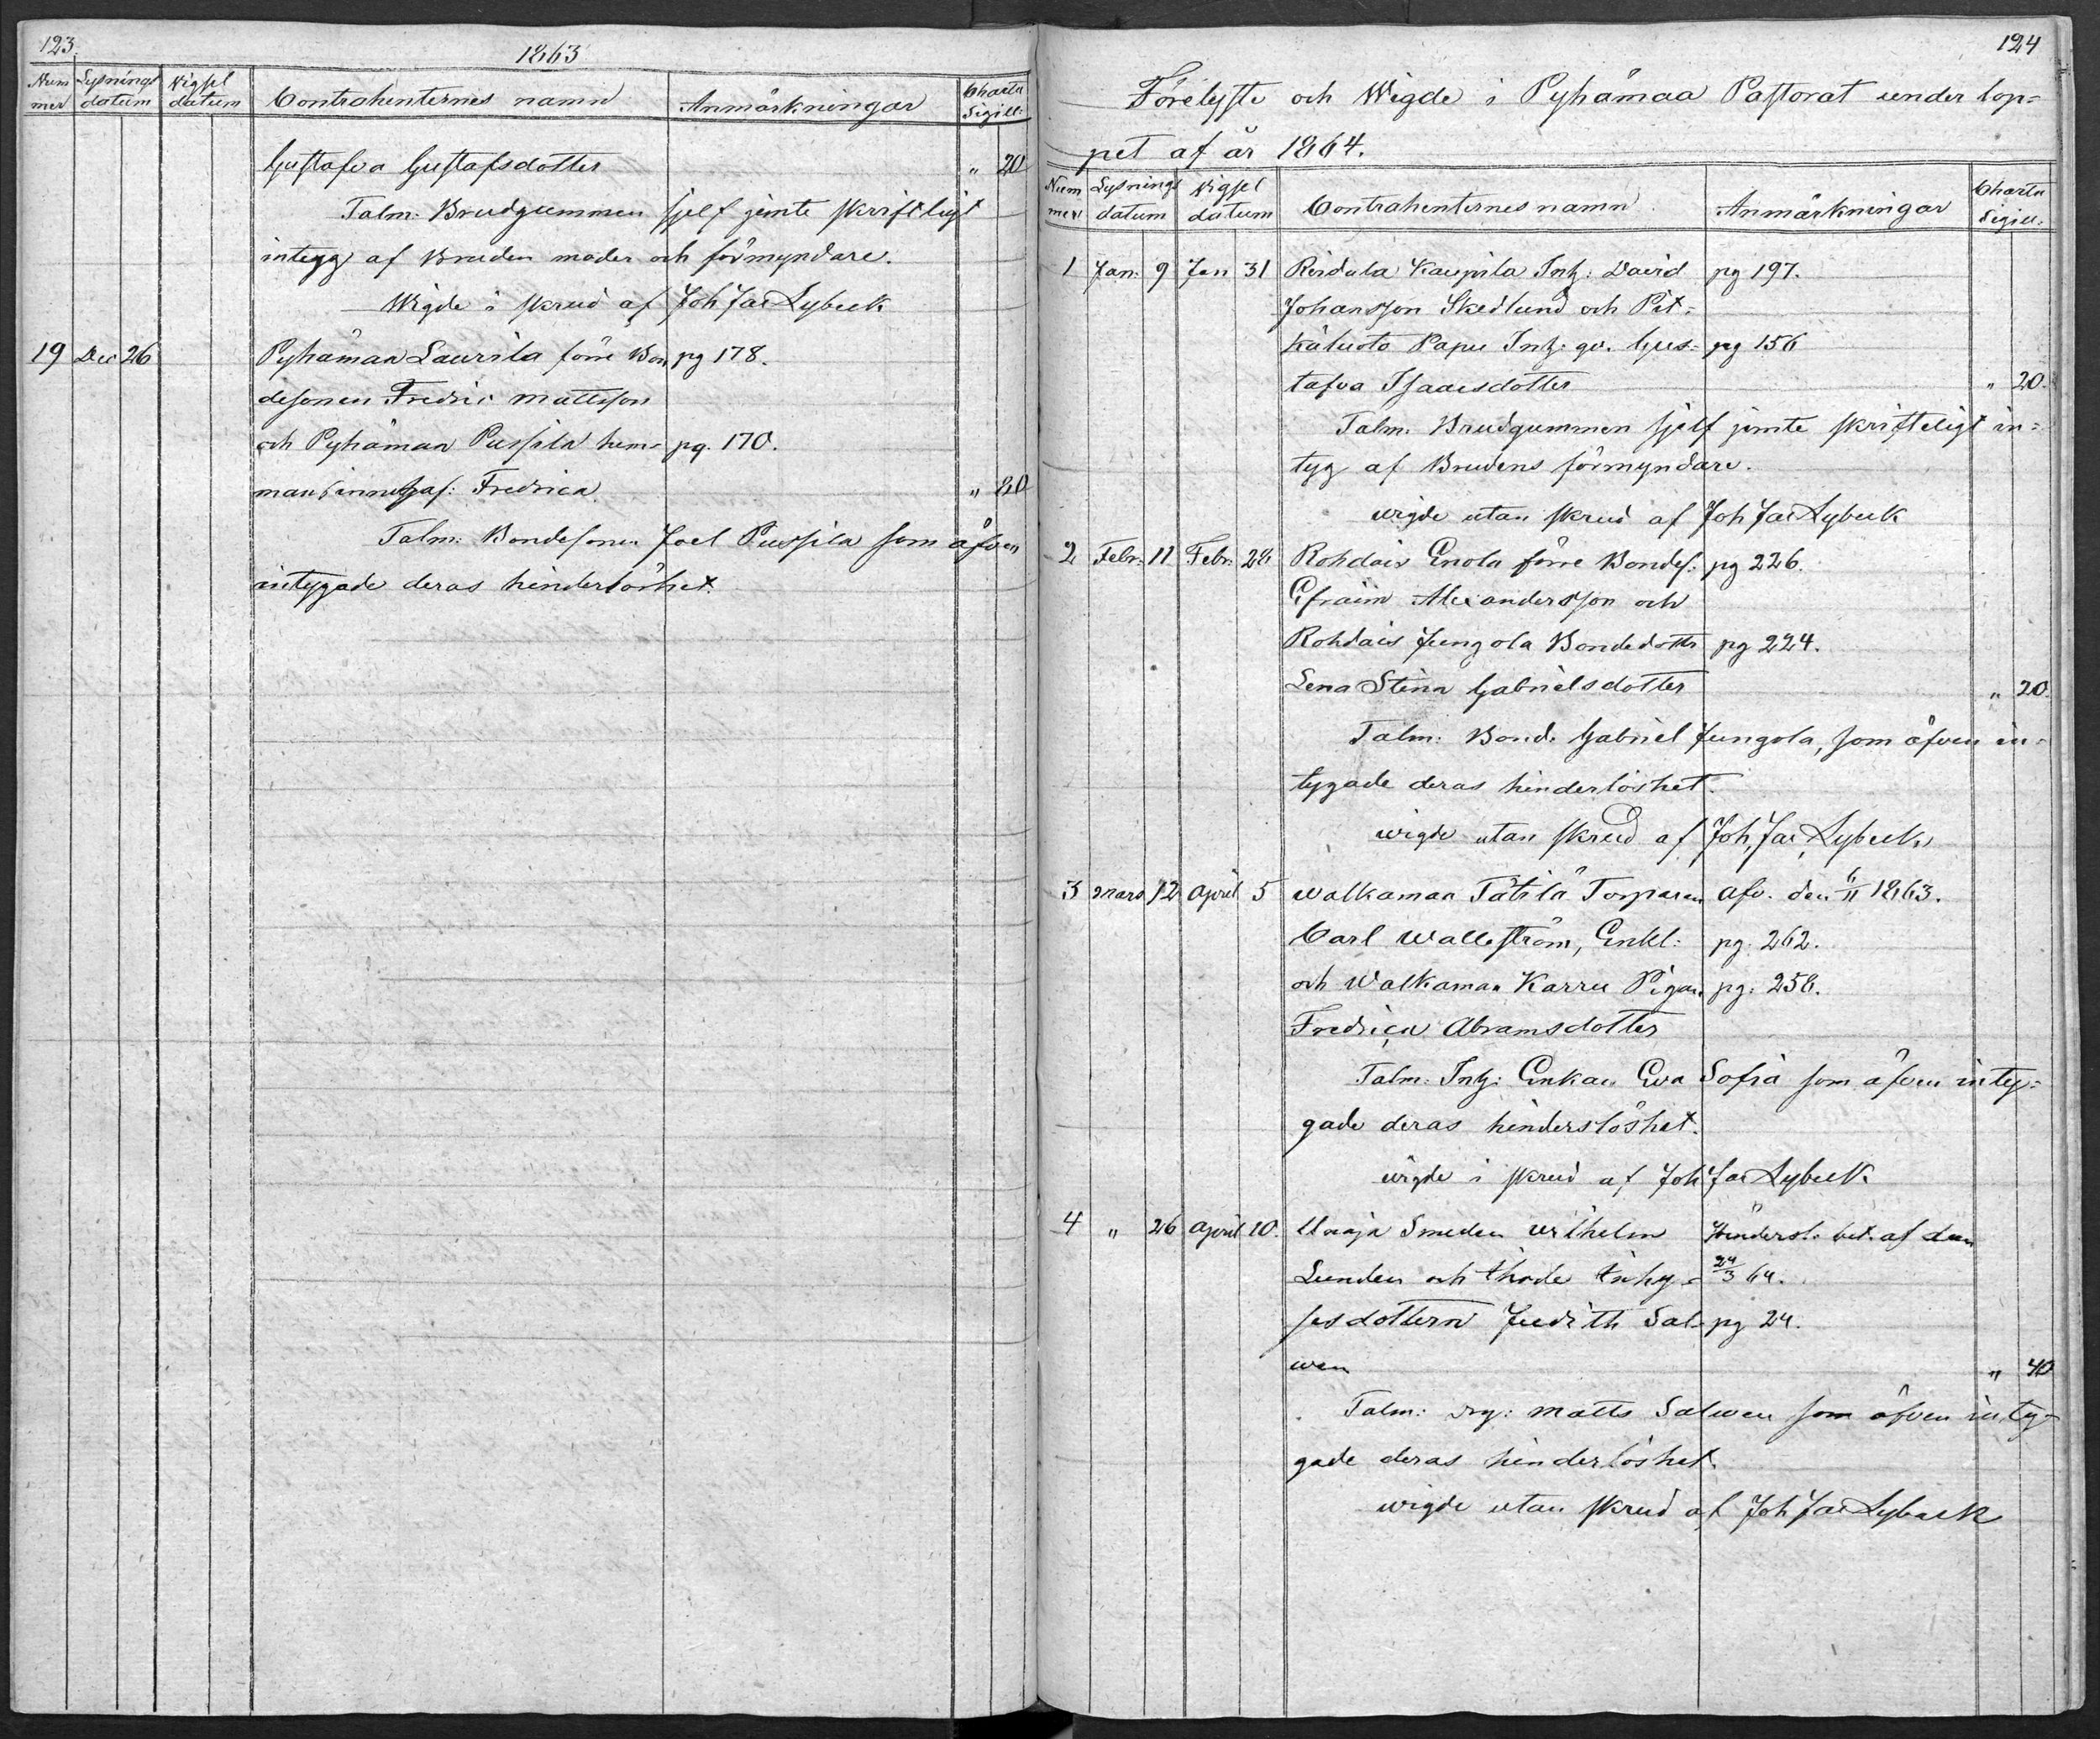 123.
1863
Num Lysnings Vigsel Charta
mer datum datum Contrahenternes namn Anmärkningar Sigill:
Gustafva Gustafsdotter " 20
Talm: Brudgummen sjelf jemte skriftligt
intyg af Bruden moder och förmyndare.
Wigde i skrud af Joh Jac Lybeck
19 Dec 26 Pyhämaa Laurila förre Bon pg 178.
desonen Fredric Mattsson
och Pyhämaa Pussila hem- pg. 170.
mans Fredrica " 80
Talm: Bondesonen Joel Pussila som äfven
intygade deras hinderlöshet.
124
Förelyste och Wigde i Pyhämaa Pastorat under lop=
pet af år 1864.
Num Lysnings Vigsel Charta
mer datum datum Contrahenternes namn Anmärkningar Sigill.
1 Jan. 9 Jan 31 Reidala Kaupila Inh: David pg 197.
Johansson Skedlund och Pit=
käluoto Papu Inh: qv. Gus= pg 156
tafva Isaacsdotter " 20.
Talm. Brudgummen sjelf jemte skrifteligt in=
tyg af Brudens förmyndare.
wigde utan skrud af Joh Jac Lybeck
2 Febr: 11 Febr: 28 Rohdais Enola förre Bondes. pg 226.
Efraim Alexandersson och
Rohdais Jungola Bondedottr pg 224.
Lena Stina Gabrielsdotter " 20.
Talm: Bond. Gabriel Jungola, som äfven in=
tygade deras hinderlöshet.
wigde utan skrud af Joh, Jac, Lybeck
3 Mars 12 April 5 Walkamaa Tätilä Torparen afv. den 6/11 1863.
Carl Wallström, Enkl: pg. 262.
och Walkamaa Karru Pigan pg: 258.
Fredrica Abramsdotter
Talm: Inh: Enkan Eva Sofia som äfven inty=
gade deras hinderslöshet.
wigde i skrud af Joh Jac Lybeck
4 " 26 April 10. Unaja Smeden Wilhelm Hindersl. bet. af den
Lunden och Ihode Inhy= 24/3 64.
sesdottern Judith Sal- pg 24.
wen " 40
Talm: Matts Salwen som äfven inty-
gade deras hinderlöshet.
wigde utan skrud af Joh Jac Lybeck